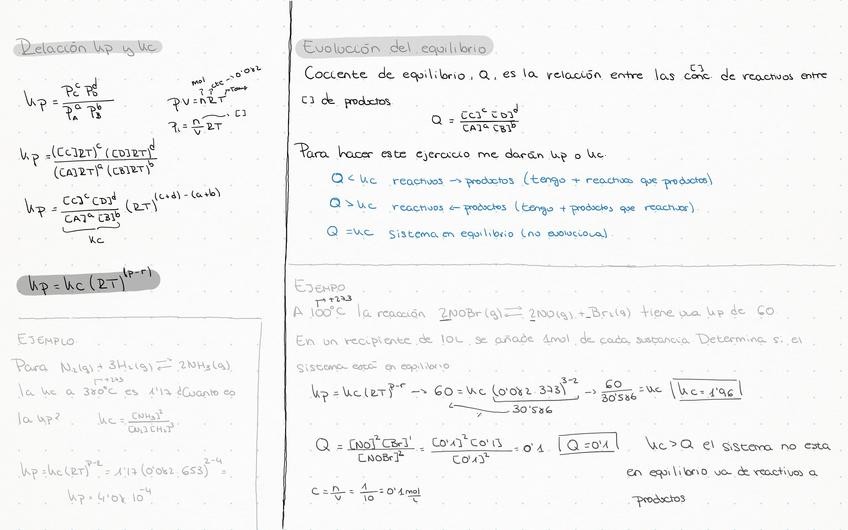 Relación Kp y Kc
Kp = P_C^c P_D^d / P_A^a P_B^b
mol
cte → 0'082
PV = nRT → Temp
P_i = n/V RT
[ ]
Kp = ([C]RT)^c ([D]RT)^d / ([A]RT)^a ([B]RT)^b
Kp = [C]^c [D]^d / [A]^a [B]^b (RT)^(c+d)-(a+b)
Kc
Kp = Kc (RT)^(p-r)
EJEMPLO
Para N₂(g) + 3H₂(g) ⇌ 2NH₃(g)
+273
la Kc a 380°C es 1'17 ¿Cuanto es
la Kp? Kc = [NH₃]² / [N₂][H₂]³
Kp = Kc(RT)^p-r = 1'17 (0'082 · 653)^2-4 =
Kp = 4'08 · 10^-4
Evolución del equilibrio
[ ]
Cociente de equilibrio, Q, es la relación entre las conc. de reactivos entre
[ ] de productos
Q = [C]^c [D]^d / [A]^a [B]^b
Para hacer este ejercicio me darán Kp o Kc.
Q < Kc reactivos → productos (tengo + reactivos que productos)
Q > Kc reactivos ← productos (tengo + productos que reactivos)
Q = Kc sistema en equilibrio (no evoluciona)
EJEMPO
+273
A 100°C la reacción 2NOBr(g) ⇌ 2NO(g) + Br₂(g) tiene una Kp de 60
En un recipiente de 10L se añade 1mol de cada sustancia Determina si el
sistema está en equilibrio
Kp = Kc (RT)^p-r → 60 = Kc (0'082 · 373)^3-2 → 60 / 30'586 = Kc Kc = 1'96
30'586
Q = [NO]² [Br]¹ / [NOBr]² = [0'1]² [0'1] / [0'1]² = 0'1 Q = 0'1 Kc > Q el sistema no esta
en equilibrio va de reactivos a
C = n/V = 1/10 = 0'1 mol/L
productos